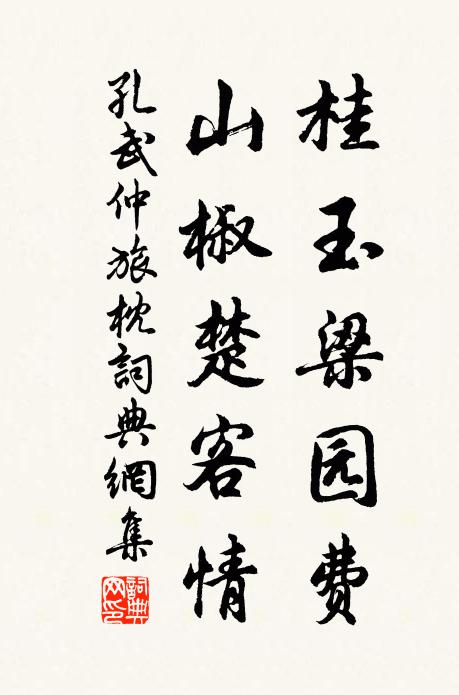 桂玉梁园费
山椒楚客情
孔武仲旅枕詞典網集
詞典网印